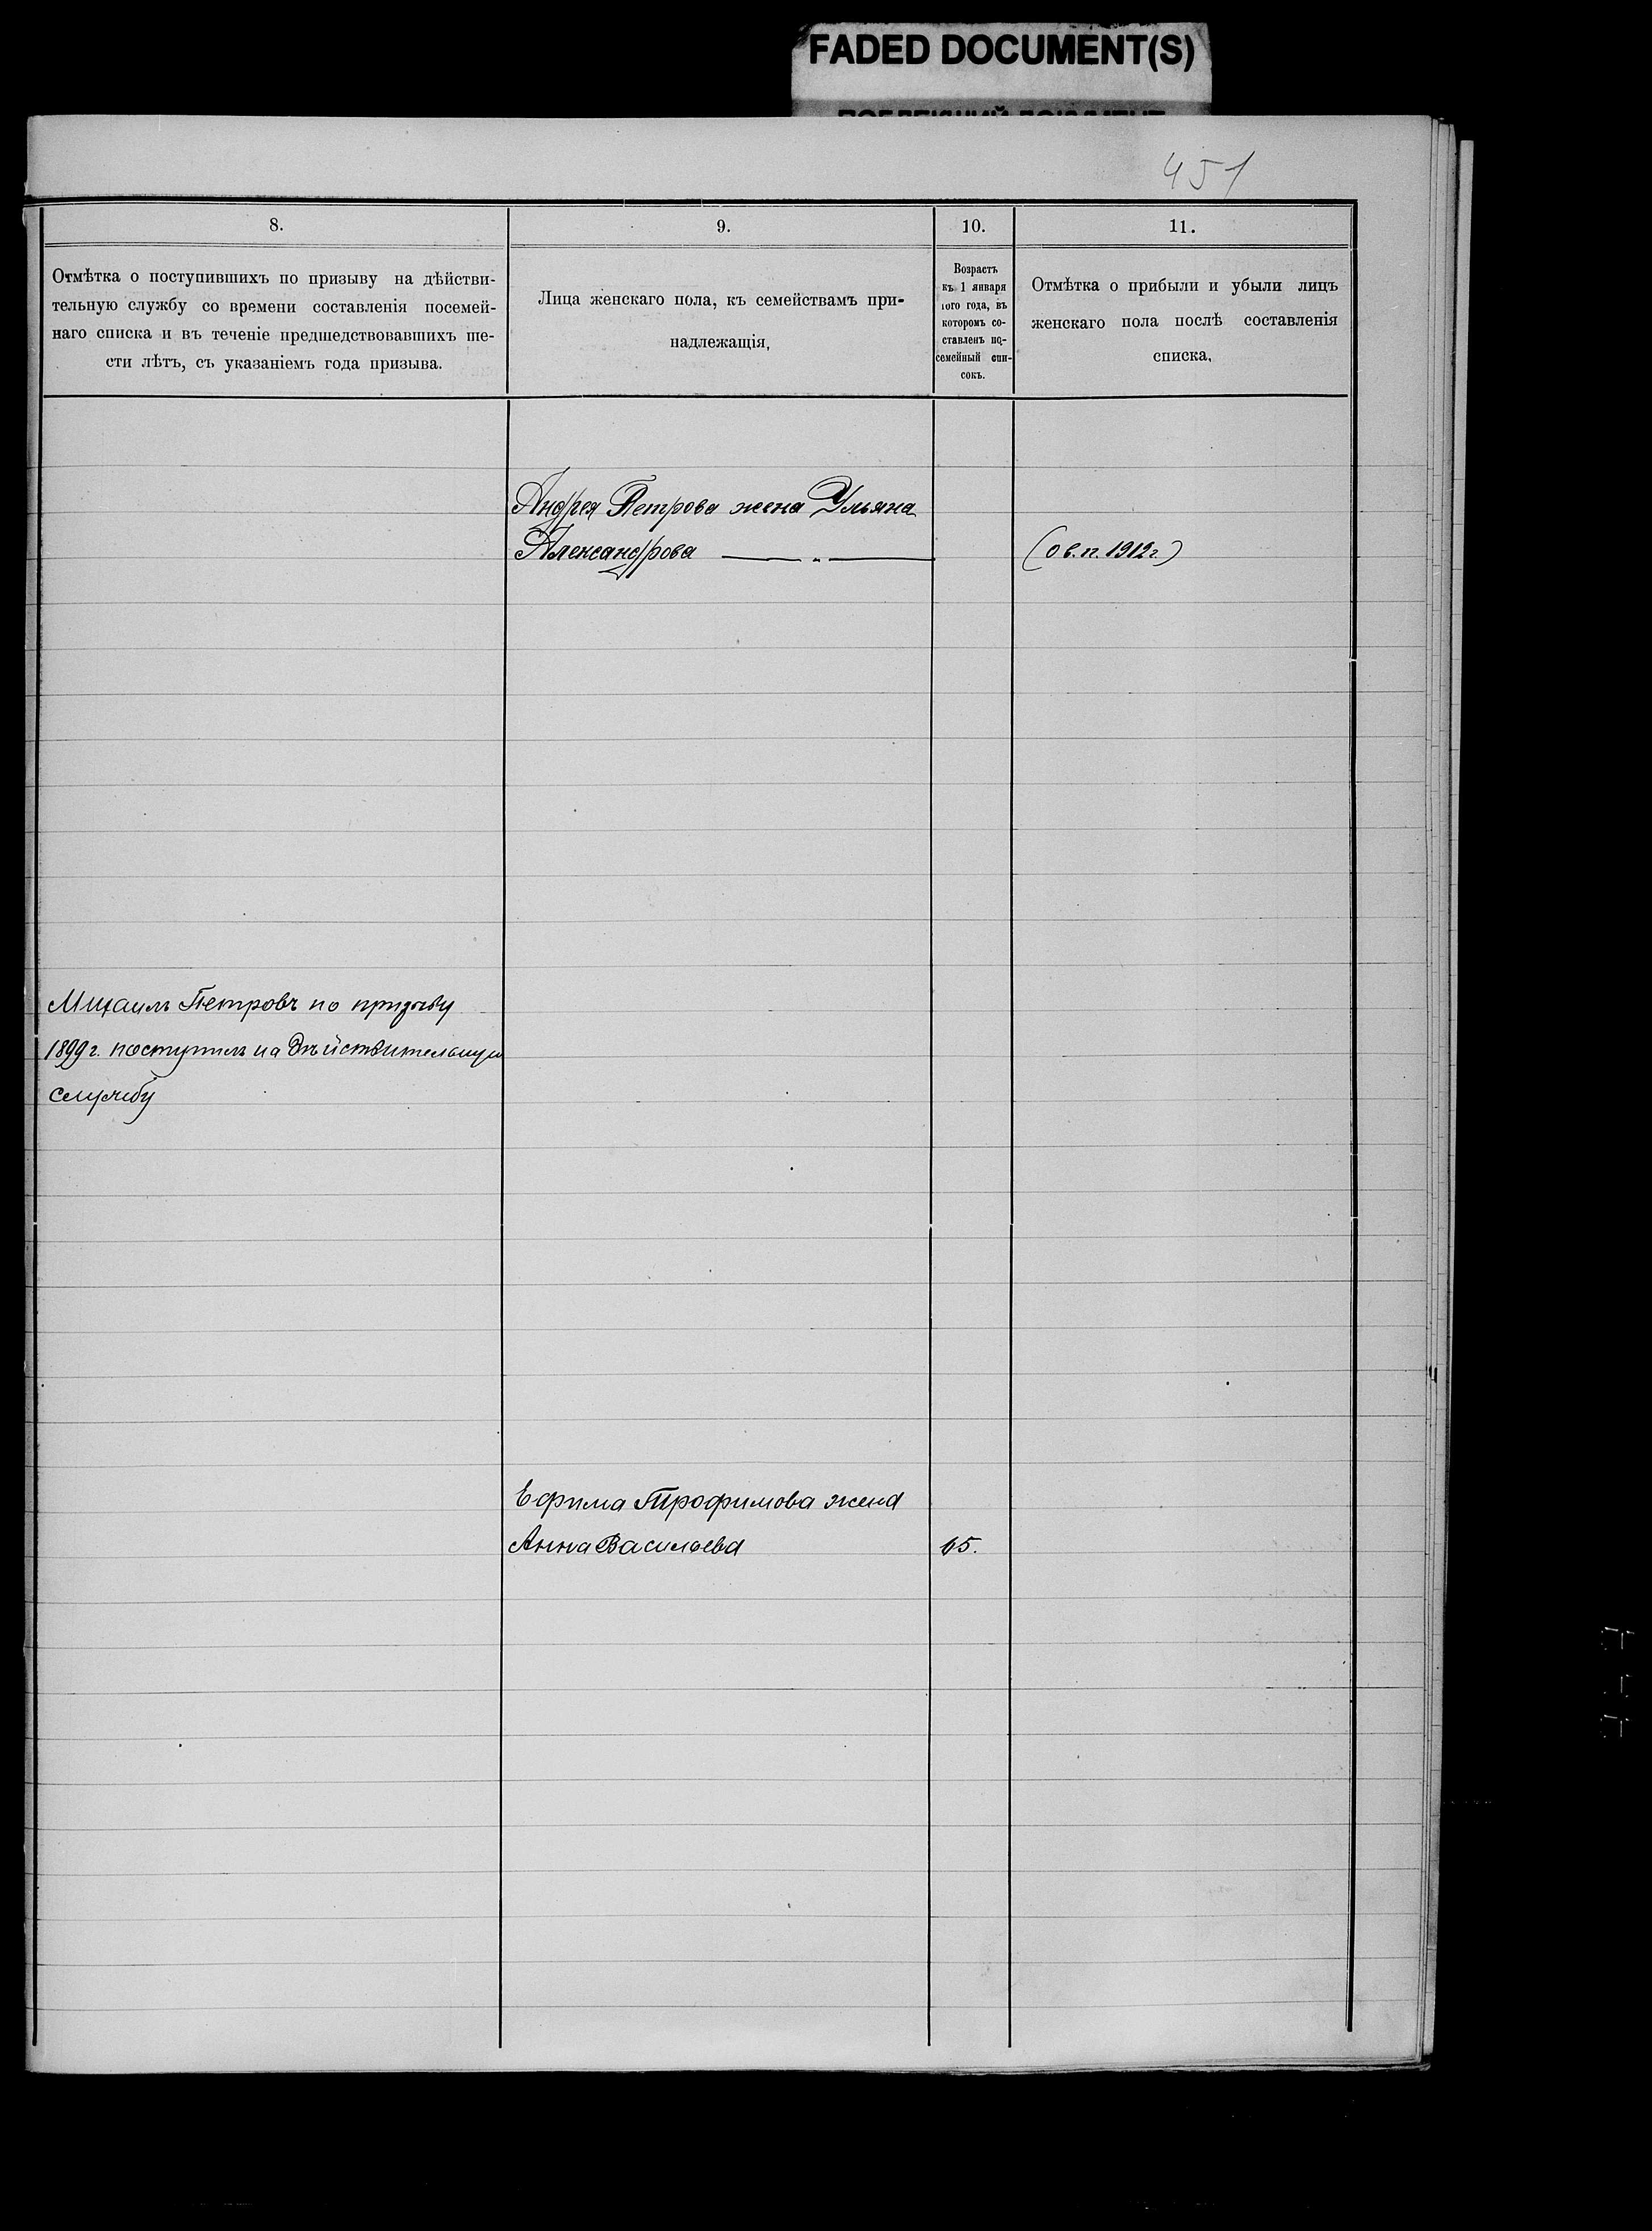 FADED DOCUMENT(S)
451
8.
9.
10.
11.
Отмѣтка о поступившихъ по призыву на дѣйстви-
тельную службу со времени составленія посемей-
наго списка и въ теченіе предшедствовавшихъ ше-
сти лѣтъ, съ указаніемъ года призыва.
Лица женскаго пола, къ семействамъ при-
надлежащія,
Возрастъ
къ 1 января
того года, въ
которомъ со-
ставленъ по-
семейный спи-
сокъ.
Отмѣтка о прибыли и убыли лицъ
женскаго пола послѣ составленія
списка,
Андрея Петрова жена Ульяна
Александрова — „ —
(о в. п. 1912 г)
Михаилъ Петровъ по призыву
1899 г. поступилъ на дѣйствительную
службу
Ефима Трофимова жена
Анна Васильева
65.